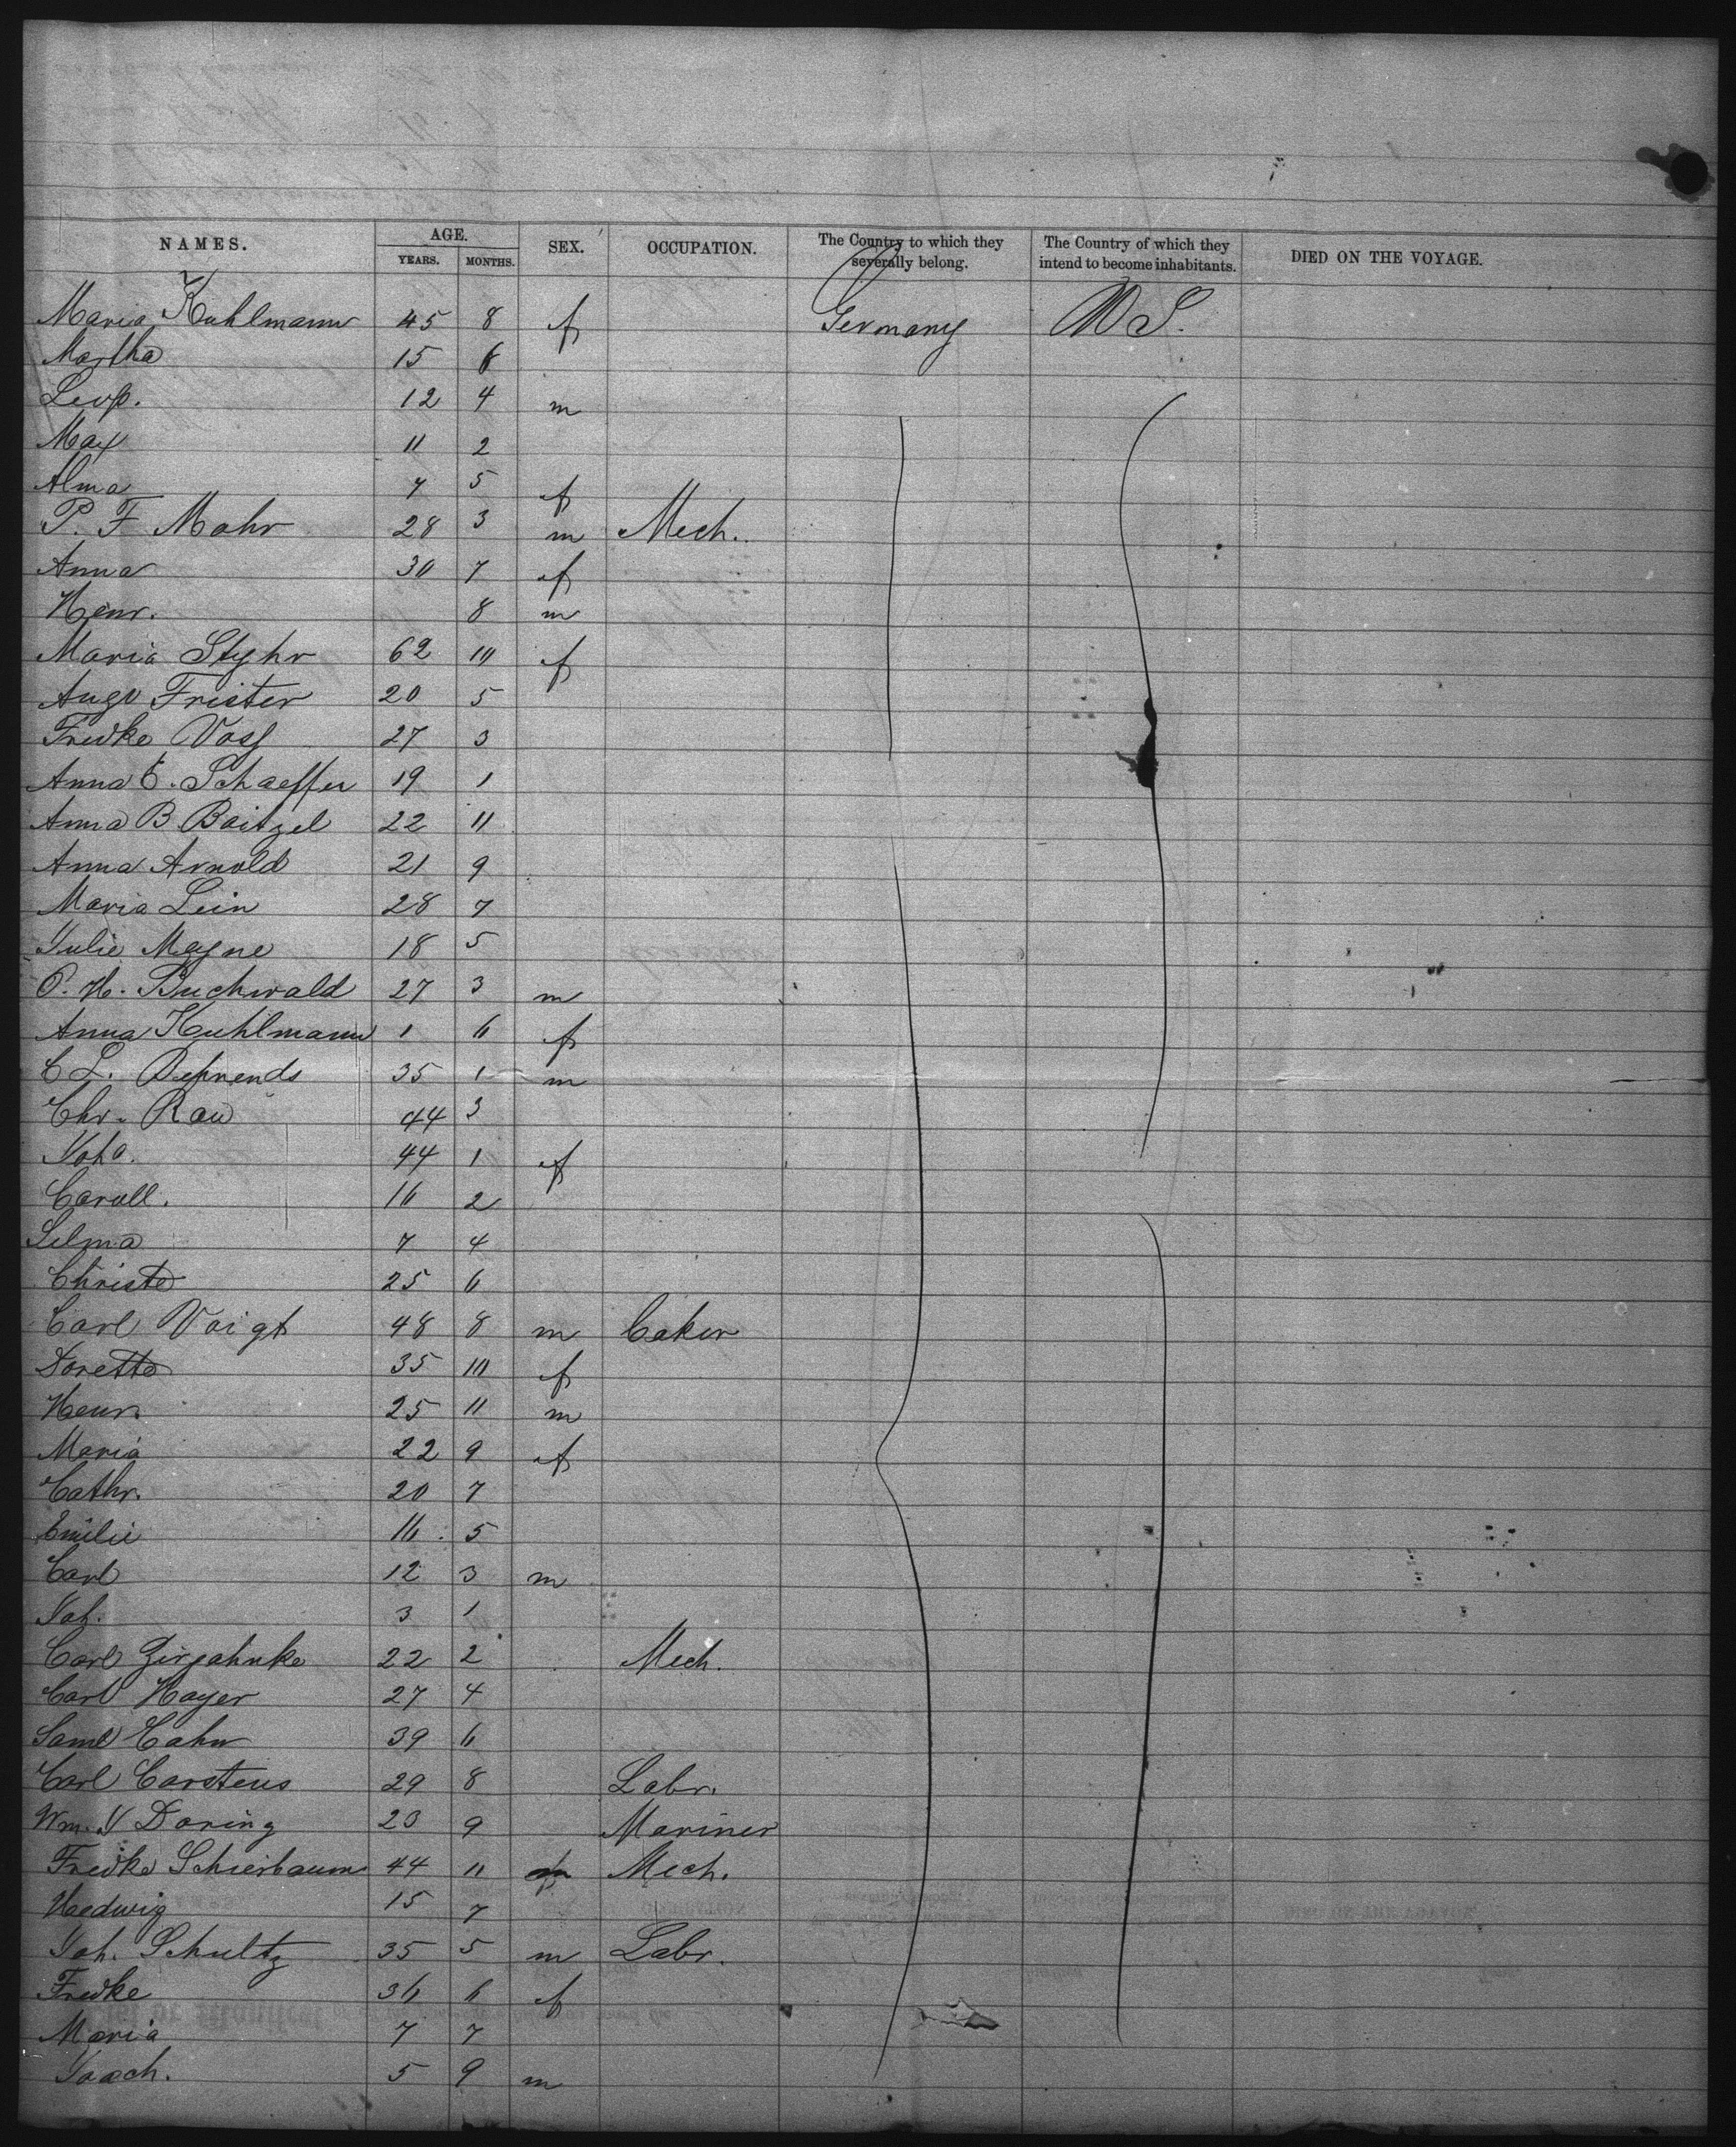 NAMES. AGE. YEARS. MONTHS. SEX. OCCUPATION. The Country to which they severally belong. The Country of which they intend to become inhabitants. DIED ON THE VOYAGE.
Maria Kuhlmann 45 8 f Germany U S.
Martha 15 6
Leop. 12 4 m
Max 11 2
Alma 7 5 f
P. F Mohr 28 3 m Mech.
Anna 30 7 f
Henr. 8 m
Maria Styhr 62 10 f
Augu Frister 20 5
Fredke Voss 27 3
Anna E. Schaeffer 19 1
Anna B Baitzel 22 11
Anna Arnold 21 9
Maria Lein 28 7
Julie Meyne 18 5
P. H. Buchwald 27 3 m
Anna Kuhlmann 1 6 f
C L. Behrends 35 1 m
Chr. Rau 44 3
Joha. 44 1 f
Caroll. 16 2
Selma 7 4
Christe 25 6
Carl Voigt 48 8 m Baker
Dorette 35 10 f
Henr. 25 11 m
Maria 22 9 f
Cathr. 20 7
Emilie 16 5
Carl 12 3 m
Joh. 3 1
Carl 22 2 Mech.
Carl Hayer 27 4
Saml Cahn 39 6
Carl Carstens 29 8 Labr.
Wm. J Doring 23 9 Mariner
Fredke Schierbaum 44 11 Mech.
Hedwig 15 7
Joh. Schultz 35 5 m Labr.
Fredke 36 6 f
Maria 7 7
Joach. 5 9 m